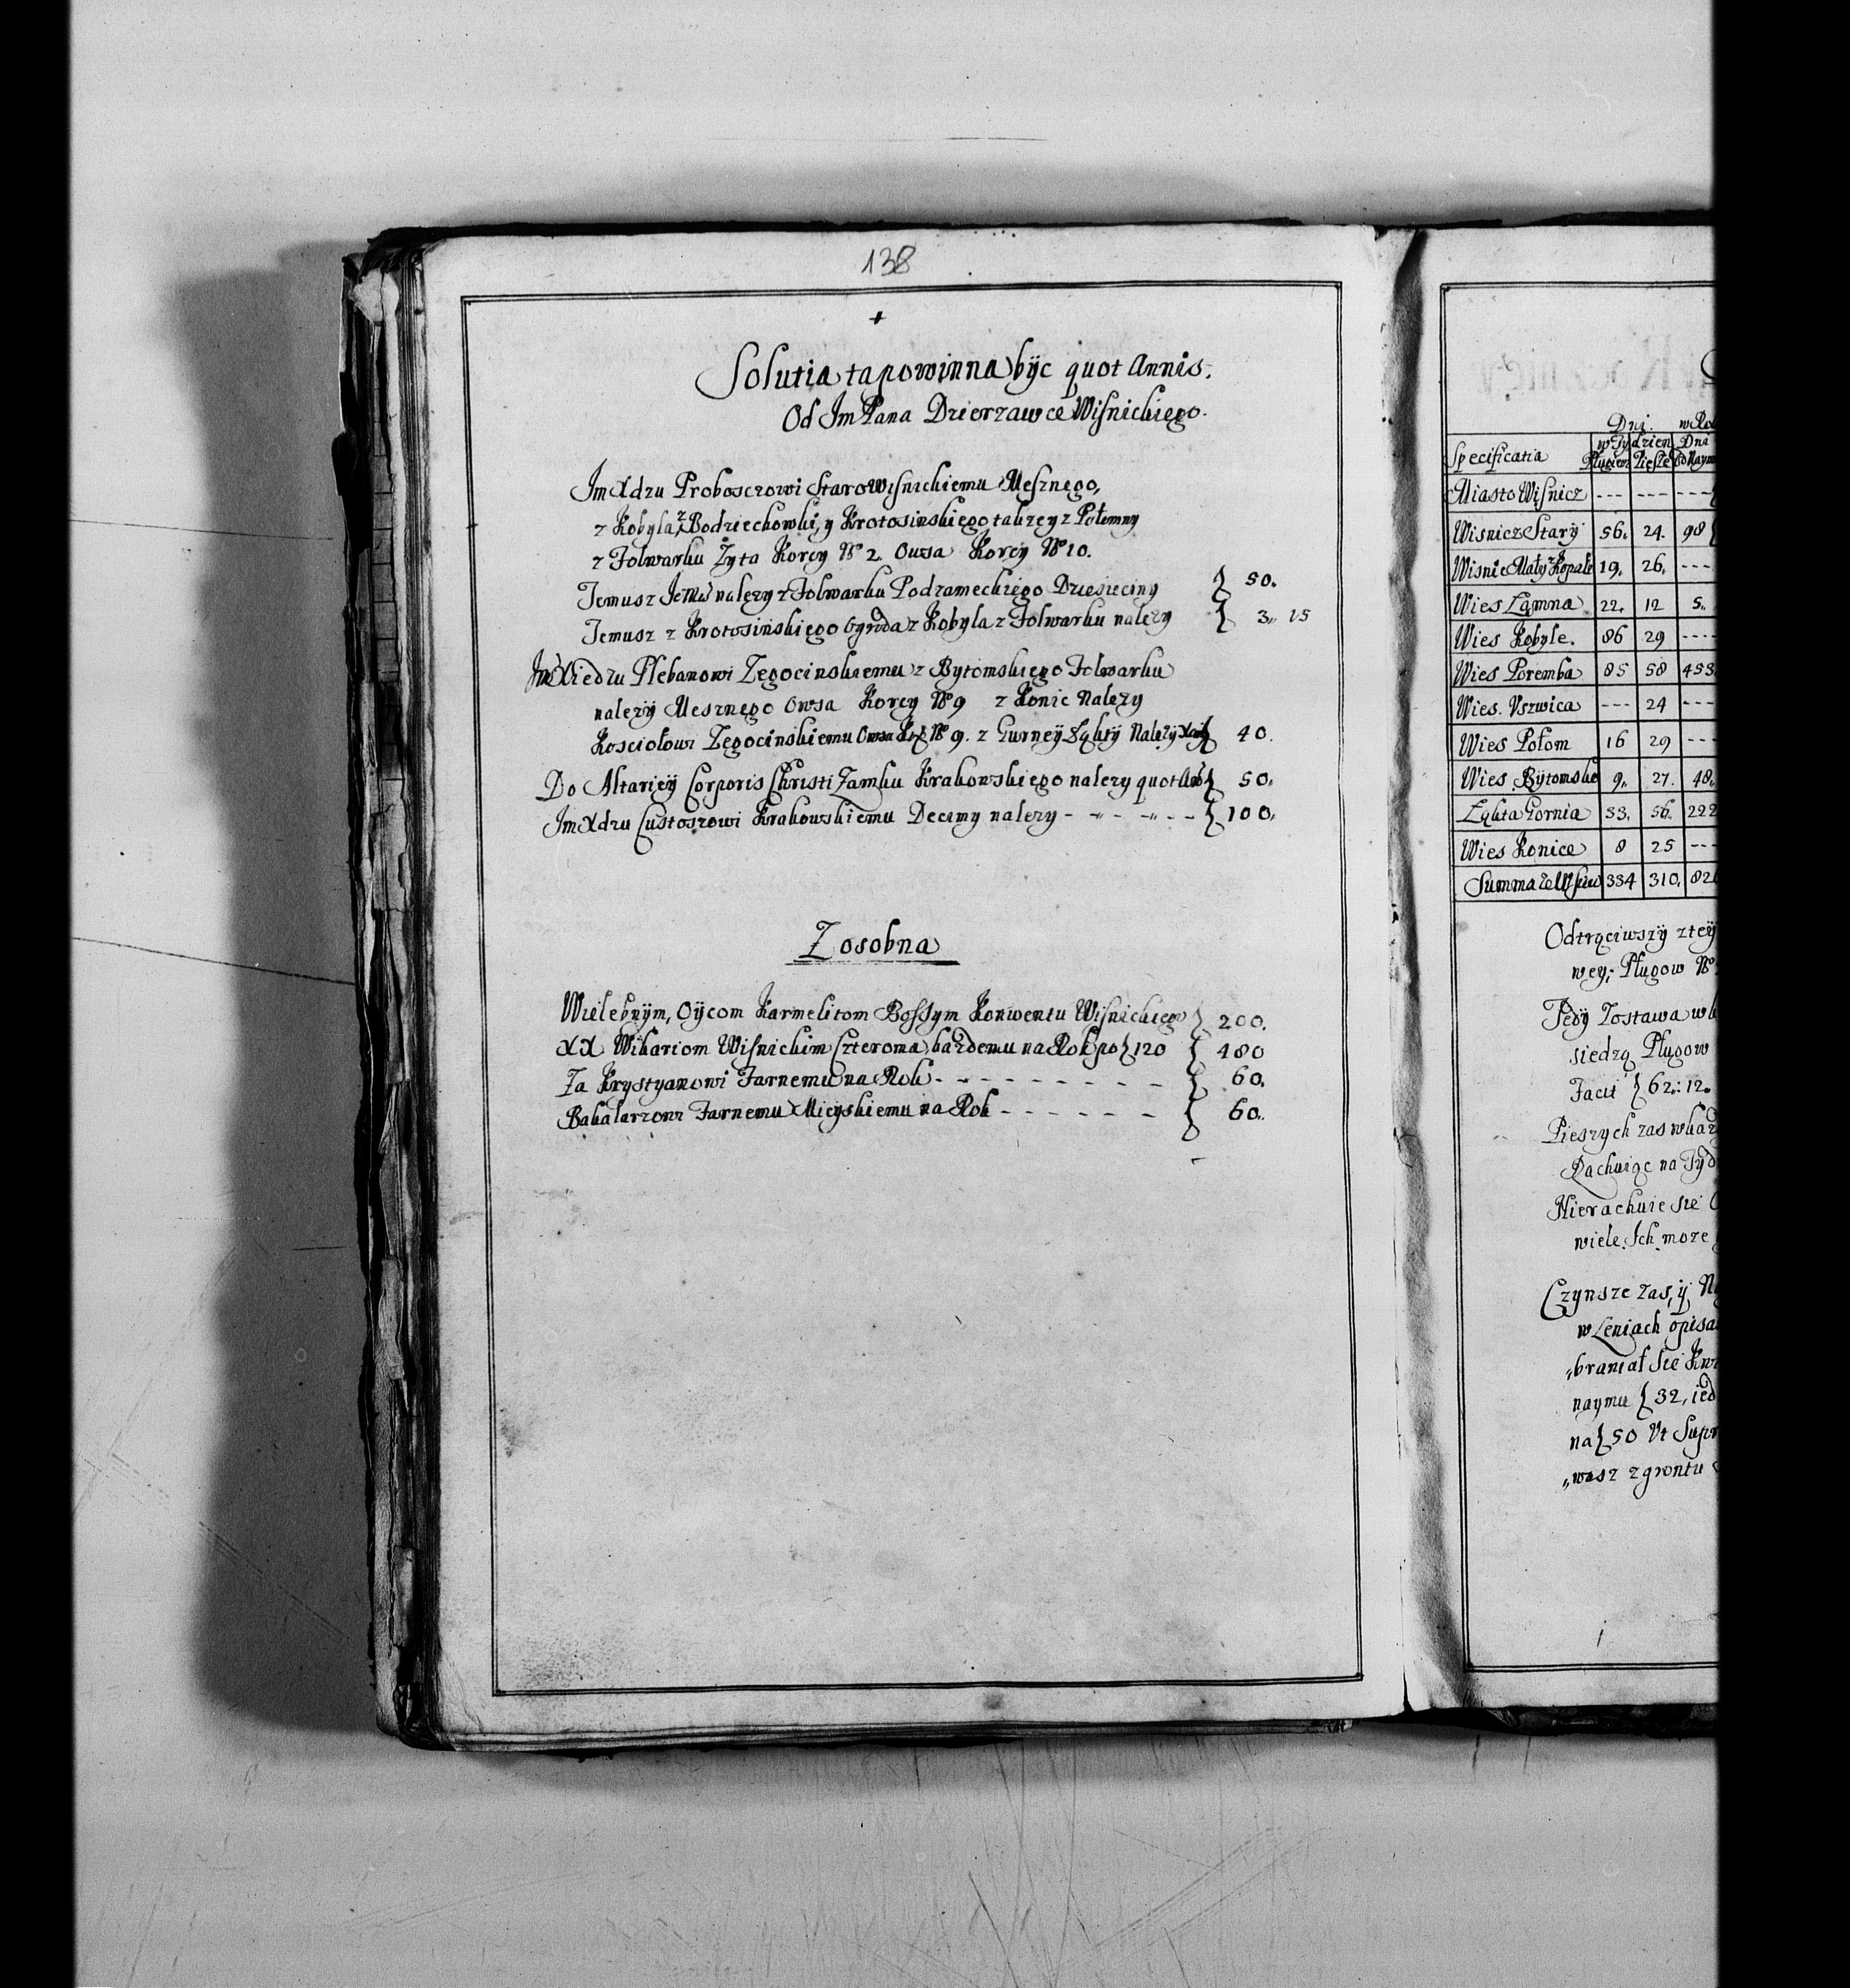 138
+
Solutia ta powinna bÿc quot Annis.
Od Jm Pana Dzierzawce Wiſnickiego.
Jm Xdzu Proboszczowi Starowiſnickiemu Mesznego,
z Kobyla, z Bodziechowski, y Krotosinskiego takzey z Połomny
z Folwarku Zyta Korcy Nº 2. Owsa Korcy Nº 10.
Temusz nalezy z Folwarku Podzameckiego Dziesieciny } 50.
Temusz z Krotosińskiego ogroda z Kobyla z Folwarku nalezy { 3,, 15
Jm Xiedzu Plebanowi Zegocinskiemu z Bytomskiego Folwarku
nalezÿ Mesznego Owsa Korcy Nº 9 z Konic Nalezy
Kosciołowi Zegocinskiemu Owsa Nº 9. z Gurneÿ Łąktÿ Należy { 40.
Do Altarieÿ Corporis Christi Zamku Krakowskiego nalezy quot { 50.
Jm Xdzu Custoszowi Krakowskiemu Decemy nalezy - - - - - { 100.
Z osobna
Wielebnÿm, Oÿcom Karmelitom Boſsym Konwentu Wiſnickiego } 200.
XX Wikariom Wiſnickim Czteroma, każdemu na Rok po { 120 { 480
Za Krystyanowi Farnemu na Rok - - - - - - - - { 60.
Bakalarzowi Farnemu Mieyskiemu na Rok - - - - - - { 60.
Dni. w Rok
Specificatia w Tydzien Dni
Pługiem Piesze
Miasto Wiſnicz --- --- ---
Wisnicz Starÿ 56. 24. 98
Wisnic Małÿ z Kopal 19. 26. ---
Wies Łąmna 22. 12 5.
Wies Kobyle. 86 29 ---
Wies Poremba 85 58 453
Wies. Vszwica --- 24 ---
Wies Połom 16 29 ---
Wies Bÿtomsko 9. 27. 48.
Łąkta Gornia 33. 56. 222
Wies Konice 8 25 ---
Summa 334 310. 82
Odtrąciwszÿ z teÿ
wey, Pługow Nº
Tedÿ Zostawa w
siedzą Pługow
Facit { 62.: 12.
Pieszych zas w każ
Rachuiąc na Tÿd
Nierachuie sie
wiele. Ich moze
Czynsze zas, ÿ
w Leniach opisa
„braniał sie Kw
naymu { 32, ied
na { 50 Vt Supr
„wasz z gruntu